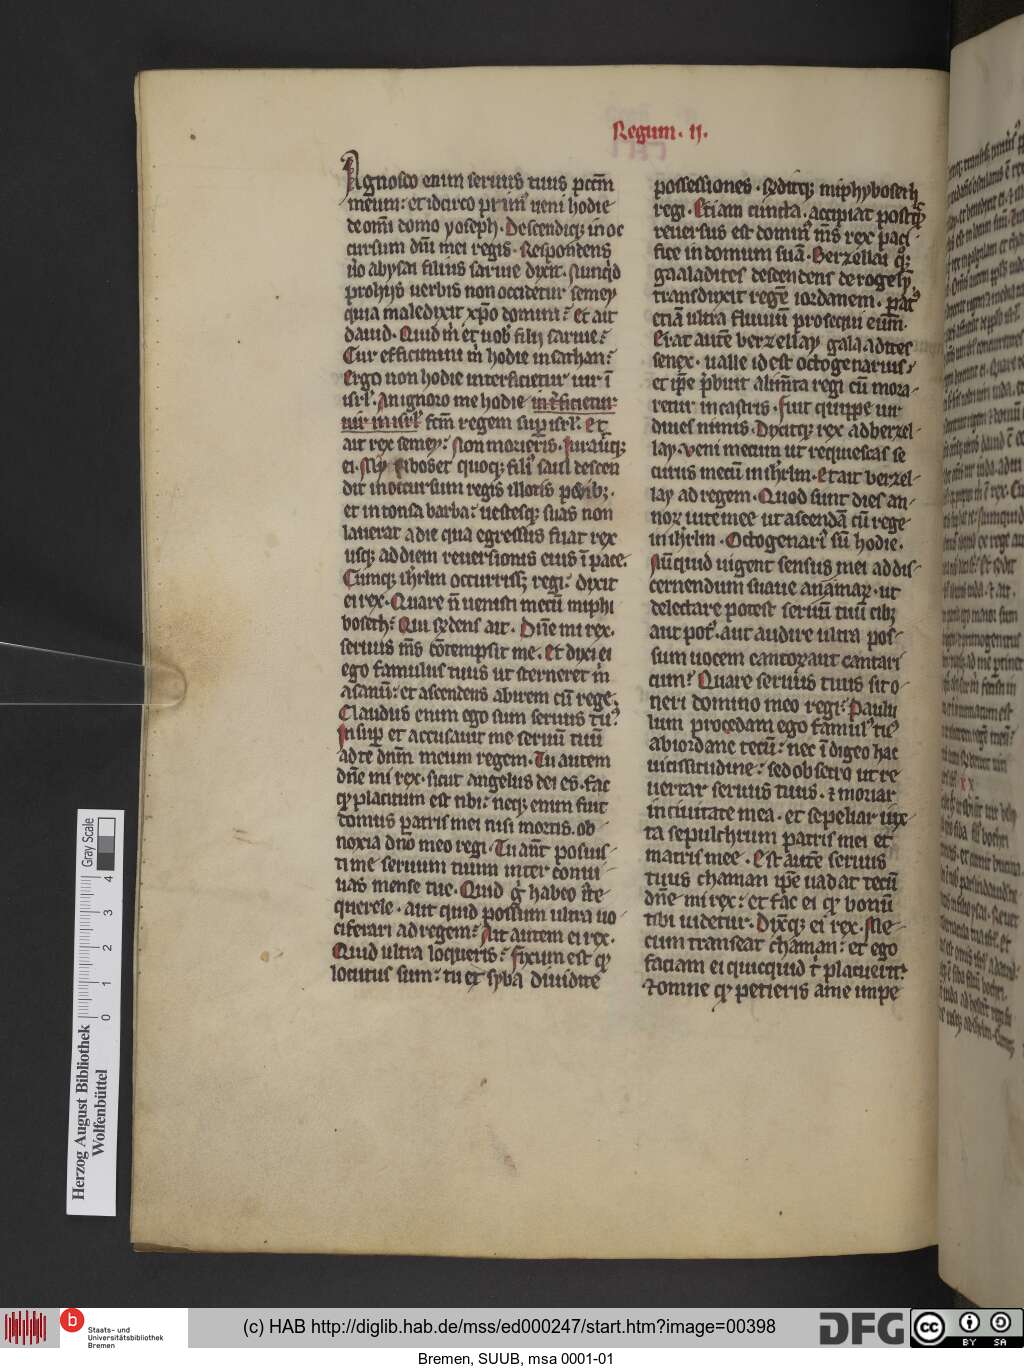 Regum · ij.
Agnosco enim seruus tuus pctm̄
meum: et idcirco prim᷒ ueni hodie
de om̄i domo yoseph. Descendiqꝫ in oc
cursum dn̄i mei regis. Respondens
u̾o abysai filius saruie dixit. Nunq̇d
prohijs uerbis non occidetur semey
quia maledixit xp̄o domini: Et ait
dauid. Quid m̍ et uob᷒ filij saruie:
Cur efficimini m̍ hodie in sathan:
Ergo non hodie interficietur uir ī
isrl̓. An ignoro me hodie int̓ficietur
uir in isrl̓ fc̄m regem sup̱ isrl̓. Et
ait rex semey: Non morieris. Jurauitqꝫ
ei. Myfiboset quoqꝫ fili᷒ saul descen
dit in occursum regis illotis pedibꝫ.
et intonsa barba: uestesqꝫ suas non
lauerat a die qua egressus fuat rex
usqꝫ ad diem reuersionis eius ī pace.
Cumqꝫ ihr̓lm occurrissꝫ regi: dixit
ei rex. Quare n̄ uenisti mecū miphi
boseth: Qui r̄dens ait. Dn̄e mi rex.
seruus m̄s cōtempsit me. Et dixi ei
ego famulus tuus ut sterneret m̍
asanū: et ascendens abirem cū rege.
Claudus enim ego sum seruus tu᷒
Insup̱ et accusauit me seruū tuū
ad te dn̄m meum regem. Tu autem
dn̄e mi rex. sicut angelus dei es. fac
qꝫ placitum est tibi: neqꝫ enim fuit
domus patris mei nisi mortis. ob
noxia dn̄o meo regi. Tu aut̄ posuis
ti me seruum tuum inter conui
uas mense tue. Quid g̊ habeo iste
querele. aut quid possum ultra uo
ciferari ad regem: Ait autem ei rex.
Quid ultra loqueris: Fixum est qꝫ
locutus sum: tu et syba diuidite
possessiones. r̄ditqꝫ miphyboseth
regi. Etiam cuncta. accipiat postqꝫ
reuersus est domin᷒ m̄s rex paci
fice in domum suā. Berzellai qꝫ
gaaladites descendens de rogelỹ
transduxit regē iordanem. parat᷒
etiā ultra fluuiū prosequi eum̄.
Erat autē berzellay galaadites
senex. ualle id est octogenarius
et ip̄e p̍buit alim̄ta regi cū mora
retur in castris. fuit quippe uir
diues nimis. Dixitqꝫ rex ad berzel
lay. Veni mecum ut requiescas se
curus mecū in ihr̓lm. Et ait berzel
lay ad regem. Quod sunt dies an
noꝝ uite mee ut ascendā cū rege
in ihr̓lm. Octogenari᷒ sū hodie.
Nūquid uigent sensus mei ad dis
cernendum suaue an amaꝝ. ut
delectare potest seruū tuū cibꝫ
aut pot᷒. aut audire ultra pos
sum uocem cantoꝝ aut cantari
cum: Quare seruus tuus sit o
neri domino meo regi: Paulu
lum procedam ego famul᷒ tu᷒
ab iordane tecū: nec īdigeo hac
uicissitudine: sed obsecro ut re
uertar seruus tuus. ⁊ moriar
in ciuitate mea. et sepeliar iux
ta sepulchrum patris mei et
matris mee. Est autē seruus
tuus chaman ip̄e uadat tecū
dn̄e mi rex: et fac ei qꝫ bonū
tibi uidetur. Dixqꝫ ei rex. Me
cum transeat chaman: et ego
faciam ei quicquid t̍ placuerit.
⁊ omne qꝫ petieris a me impe
Gray Scale
0 1 2 3 4
Herzog August Bibliothek
Wolfenbüttel
b
Staats- und
Universitätsbibliothek
Bremen
(c) HAB http://diglib.hab.de/mss/ed000247/start.htm?image=00398
DFG
cc
BY SA
Bremen, SUUB, msa 0001-01